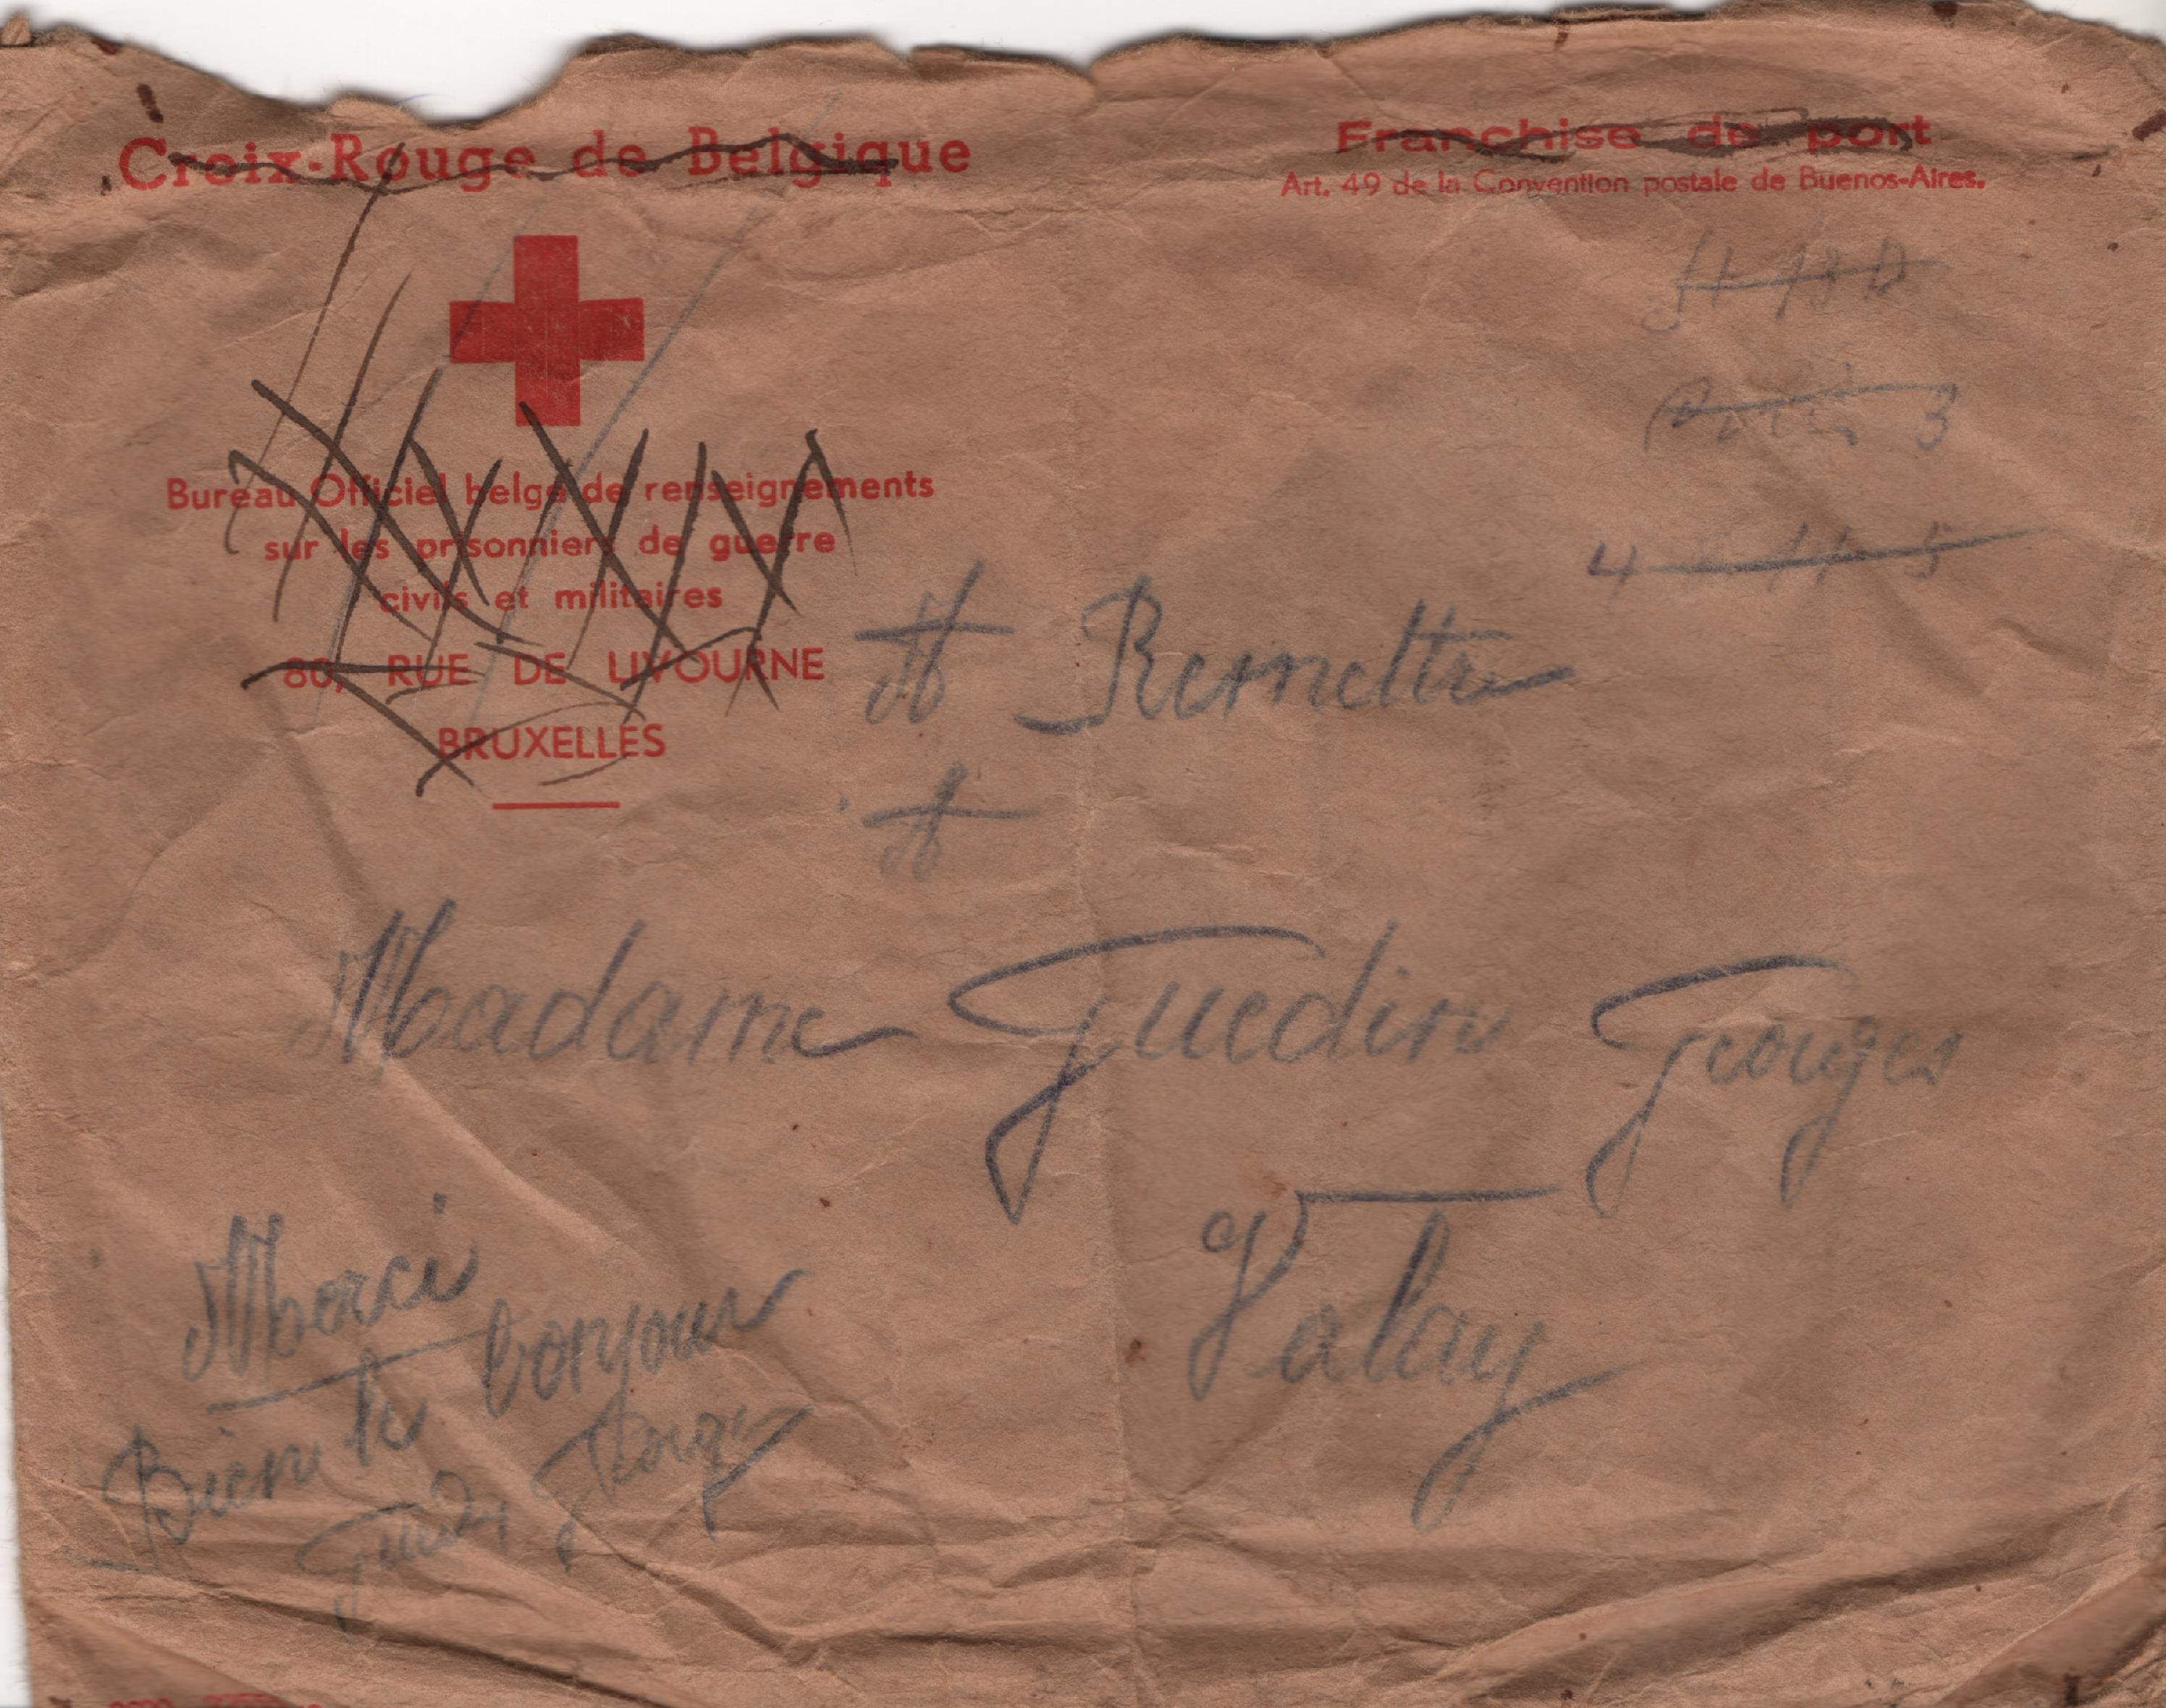 Croix-Rouge de Belgique
Franchise de port
Art. 49 de la Convention postale de Buenos-Aires.
Bureau Officiel belge de renseignements
sur les prisonniers de guerre
civils et militaires
80, RUE DE LIVOURNE
BRUXELLES
3
4
A Remettre
A
Madame Guedin Georges
Valay
Merci
Bien le bonjour
Georges